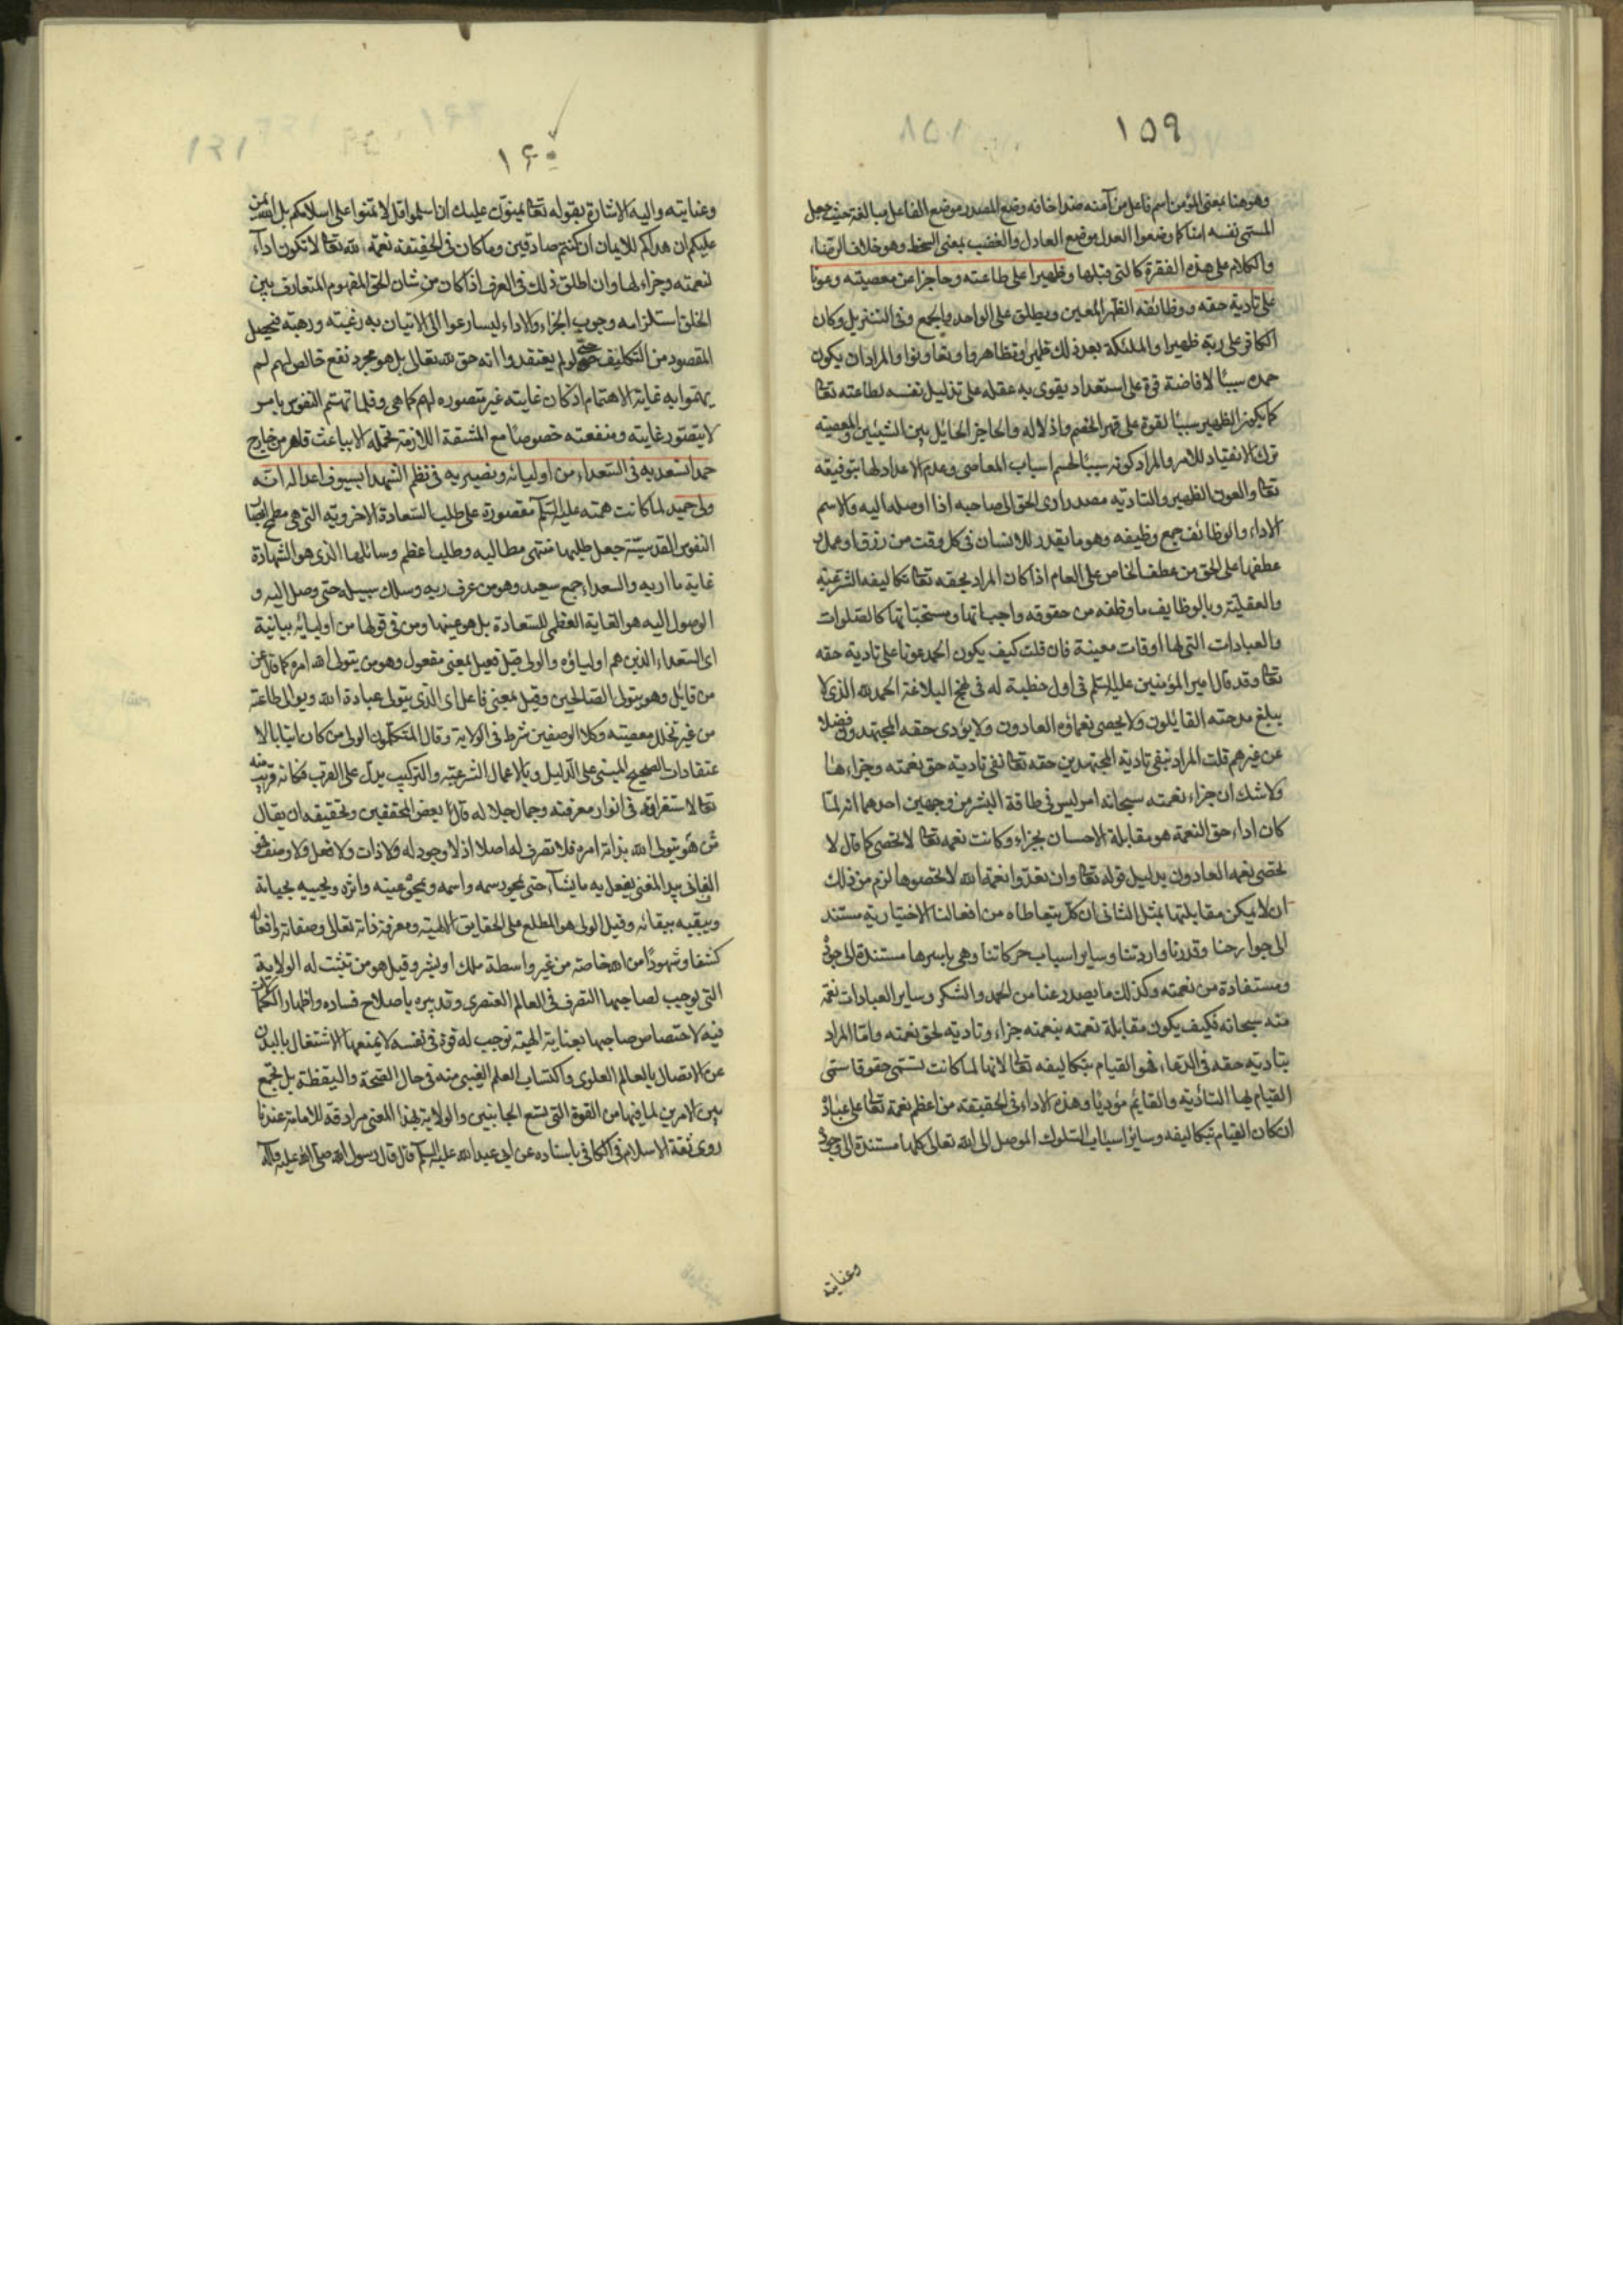 ١٥٩
وهو هنا بمعنى المؤمن اسم فاعل من آمنه ضد اخافه وضع المصدر موضع الفاعل مبالغة حيث جعل
المسمى نفسه امنا كما وضعوا العدل موضع العادل والغضب بمعنى السخط وهو خلاف الرضا،
والكلام على هذه الفقرة كالتى قبلها وظهيرا على طاعته وحاجزا عن معصيته وعونا
على تادية حقه ووظائفه الظهير المعين ويطلق على الواحد والجمع وفى التنزيل وكان
الكافر على ربه ظهيرا والملئكة بعد ذلك ظهير وتظاهروا وتعاونوا والمراد ان يكون
حمده سببًا لافاضة قوة على استعداد يقوى به عقله على تذليل نفسه لطاعته تعا
كما يكون الظهير سببًا لقوة على قهر الخصم واذلاله والحاجز الحايل بين الشيئين والمعصيته
ترك الانقياد للامر والمراد كونه سببًا لحسم اسباب المعاصى وعدم الاعداد لها بتوفيقه
تعا والعون الظهير والتادية مصدر ادى الحق الى صاحبه اذا اوصله اليه والاسم
الاداء والوظائف جمع وظيفه وهو ما يقدر للانسان فى كل وقت من رزق او عمل و
عطفها على الحق من عطف الخاص على العام اذا كان المراد بحقه تعا تكاليفه الشرعية
والعقلية وبالوظايف ما وظفه من حقوقه واجباتها ومستحباتها كالصلوات
والعبادات التى لها اوقات معينة فان قلت كيف يكون الحمد عونا على تادية حقه
تعا وقد قال امير المؤمنين عليه السلم فى اول خطبة له فى نهج البلاغة الحمد لله الذى لا
يبلغ مدحته القايلون ولا يحصى نعماؤه العادون ولا يؤدى حقه المجتهدون فضلا
عن غيرهم قلت المراد بنفى تادية المجتهدين حقه تعا نفى تادية حق نعمته وجزاءها
ولا شك ان جزاء نعمته سبحانه امر ليس فى طاقة البشر من وجهين احدهما انه لما
كان اداء حق النعمة هو مقابلة الاحسان بجزاء وكانت نعمه تعا لا تحصى كما قال لا
يحصى نعمه العادون بدليل قوله تعا وان تعدوا نعمة الله لا تحصوها لزم من ذلك
ان لا يمكن مقابلتها بمثل الثانى ان كل يتعاطاه من افعالنا الاختيارية مستند
الى جوارحنا وقدرتنا وارادتنا وساير اسباب حركاتنا وهى باسرها مستندة الى جوده
ومستفادة من نعمته وكذلك ما يصدر عنا من الحمد والشكر وساير العبادات نعمة
منه سبحانه فكيف يكون مقابلة نعمته بنعمته جزاء وتادية لحق نعمته واما المراد
بتادية حقه فى الدعاء فهو القيام بتكاليفه تعا لانها لما كانت تسمى حقوقا سمى
القيام بها التأدية والقايم مؤديًا وهذه الاداء فى الحقيقة من اعظم نعمة تعا على عباده
ان كان القيام بتكاليفه وسائر اسباب السلوك الموصل الى الله تعالى كلها مستندة الى جوده
وعنايته
١۶٠
وعنايته واليه الاشارة بقوله تعا يمنون عليك ان اسلموا قل لا تمنوا على اسلامكم بل الله يمن
عليكم ان هداكم للايمان ان كنتم صادقين وما كان فى الحقيقة نعمة الله تعا لا تكون اداء
لنعمته وجزاء لها وان اطلق ذلك فى العرف اذا كان من شان الحق المفهوم المتعارف بين
الخلق استلزامه وجوب الجزاء والاداء ليسارعوا الى الاتيان به رغبته ورهبته فيحصل
المقصود من التكليف حتى لو لم يعتقدوا انه حق لله تعالى بل هو مجرد نفع خالص لهم لم
يهتموا به غاية الاهتمام اذ كان غايته غير متصوره لهم كما هى وقلما تهتم النفوس بامر
لا يتصور غايته ومنفعته خصوصًا مع المشقة اللازمة لحمله الا بباعث قاهر من خارج
حمدا نسعد به فى السعداء من اوليائه ونصير به فى نظم الشهدا بسيوف اعدائه انه
ولى حميد لما كانت همته عليه السلم مقصورة على طلب السعادة الاخروية التى هى مطمح ابصار
النفوس القدسية جعل طلبها منتهى مطالبه وطلب اعظم وسائلها الذى هو الشهادة
غاية ماربه والسعداء جمع سعيد وهو من عرف ربه وسلك سبيله حتى وصل اليه و
الوصول اليه هو الغاية العظمى للسعادة بل هو عينها ومن فى قولها من اوليائه بيانية
اى السعداء الذين هم اولياؤه والولى قيل فعيل بمعنى مفعول وهو من يتولى الله امره كما قال عن
من قايل وهو يتولى الصالحين وقيل بمعنى فاعل اى الذى يتولى عبادة الله ويوالى طاعته
من غير تخلل معصيته وكلا الوصفين شرط فى الولاية وقال المتكلمون الولى من كان اتيا بالا
عتقادات الصحيح المبنى على الدليل وبالاعمال الشرعية والتركيب يدل على القرب فكانه قريب منه
تعا لاستغراقه فى انوار معرفته وجمال جلاله قال بعض المحققين وتحقيقه ان يقال
من هو يتولى الله بذاته امره فلا تصرف له اصلا اذ لا وجود له ولا ذات ولا فعل ولا وصف فهو
الفانى بيد المفنى يفعل به ما يشاء حتى يمحو رسمه واسمه ويمحو عينه واثره ويحييه بحياته
ويبقيه ببقائه وقيل الولى هو المطلع على الحقايق الالهية ومعرفة ذاته تعالى وصفاته وافعاله
كشفا وشهودًا من الله خاصة من غير واسطة ملك او بشر وقيل هو من تثبت له الولاية
التى توجب لصاحبها التصرف فى العالم العنصرى وتدبيره باصلاح فساده واظهار الكمالات
فيه لاختصاص صاحبها بعناية الهية توجب له قوة فى نفسه لا يمنعها الاشتغال بالبدن
عن الاتصال بالعالم العلوى واكتساب العلم الغيبى منه فى حال الصحة واليقظة بل تجمع
بين الامرين لما فيها من القوة التى تسع الجانبين والولاية بهذا المعنى مرادفة للامامة عندنا
روى ثقة الاسلام فى الكافى باسناده عن ابى عبد الله عليه السلم قال قال رسول الله صلى الله عليه واله